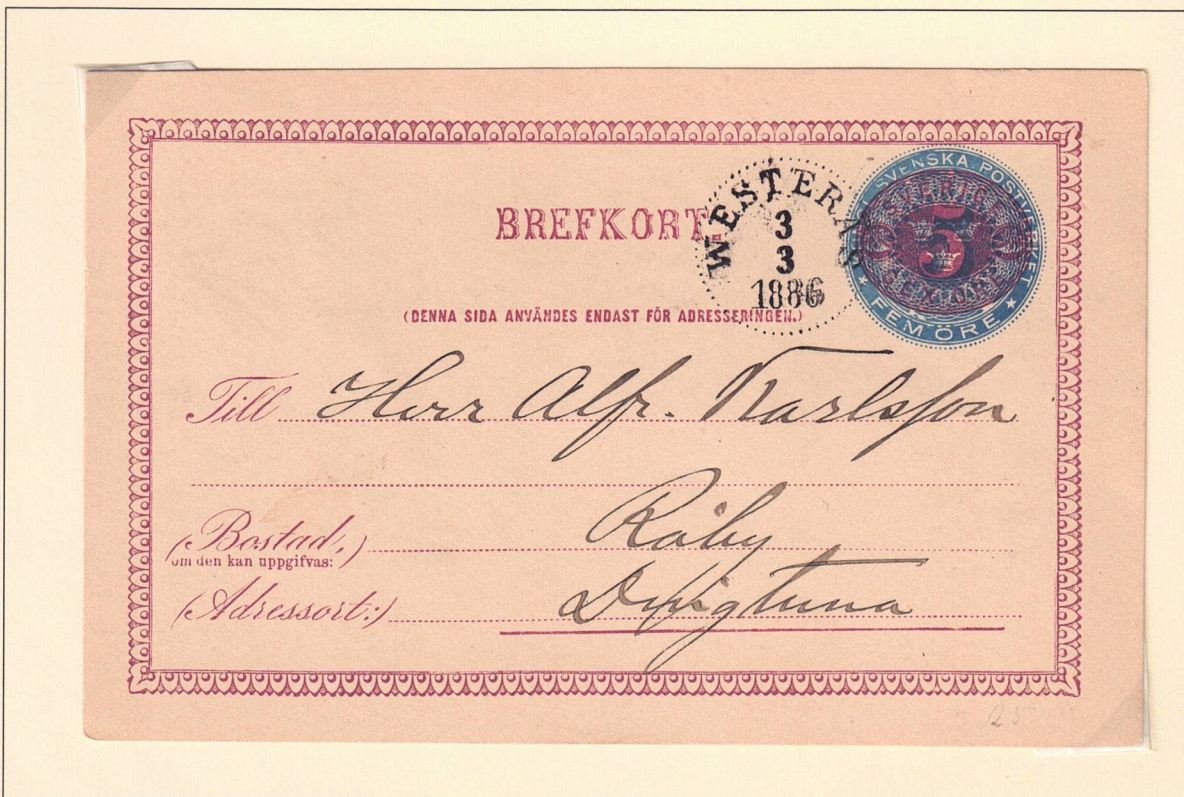 BREFKORT.
WESTERÅS
3
3
1886
SVENSKA POSTVERKET
SVERIGE
5
SEX ÖRE
★ FEM ÖRE ★
(DENNA SIDA ANVÄNDES ENDAST FÖR ADRESSERINGEN.)
Till Herr Alfr. Karlsson
(Bostad,) Råby
om den kan uppgifvas:
(Adressort:) Dingtuna
25